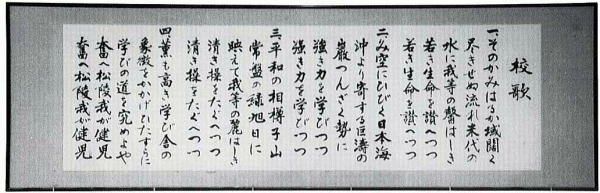 校歌
一、そのかみはるか城闢く
尽きせぬ流れ末代の
水に我等の馨はしき
若き生命を讃へつつ
若き生命を讃へつつ
二、み空にひびく日本海
沖より寄する巨濤の
巌つんざく勢に
強き力を学びつつ
強き力を学びつつ
三、平和の相樽子山
常盤の緑旭日に
映えて我等の麗はしき
清き操をたたへつつ
清き操をたたへつつ
四、薫も高い学び舎の
象徴をかかげひたすらに
学びの道を究めよや
奮へ松陵我が健児
奮へ松陵我が健児